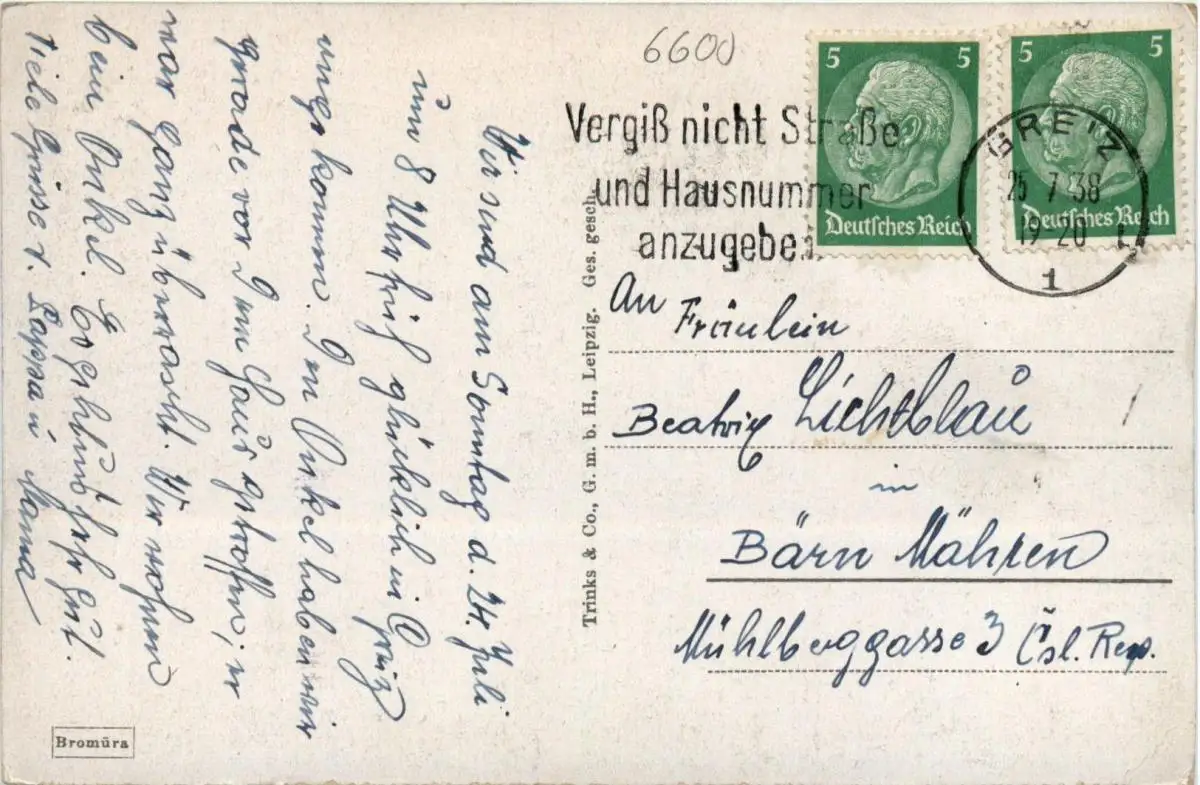 Wir sind am Sonntag d. 24. Juli
um 8 Uhr früh glücklich in Greiz
angekommen. Den Onkel haben wir
gerade vor dem Haus getroffen, er
war ganz überrascht. Wir wohnen
beim Onkel. Es geht uns sehr gut.
Viele Grüsse v. Pappa u Mama
Bromüra
Trinks & Co., G. m. b. H., Leipzig. Ges. gesch.
6600
Vergiß nicht Straße
und Hausnummer
anzugeben
5 5
Deutsches Reich
5 5
Deutsches Reich
GREIZ
25 7 38
19-20
1
An Fräulein
Beatrix Lichtblau
in
Bärn Mähren
Mühlberggasse 3 Čsl. Rep.